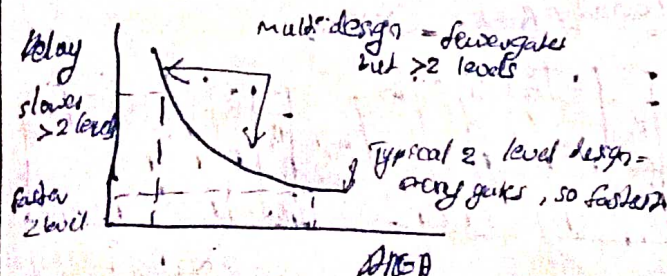 Delay
slower
>2 levels
faster
2 level
Multi design = fewer gates
but >2 levels
Typical 2 level design =
many gates, so faster
AREA